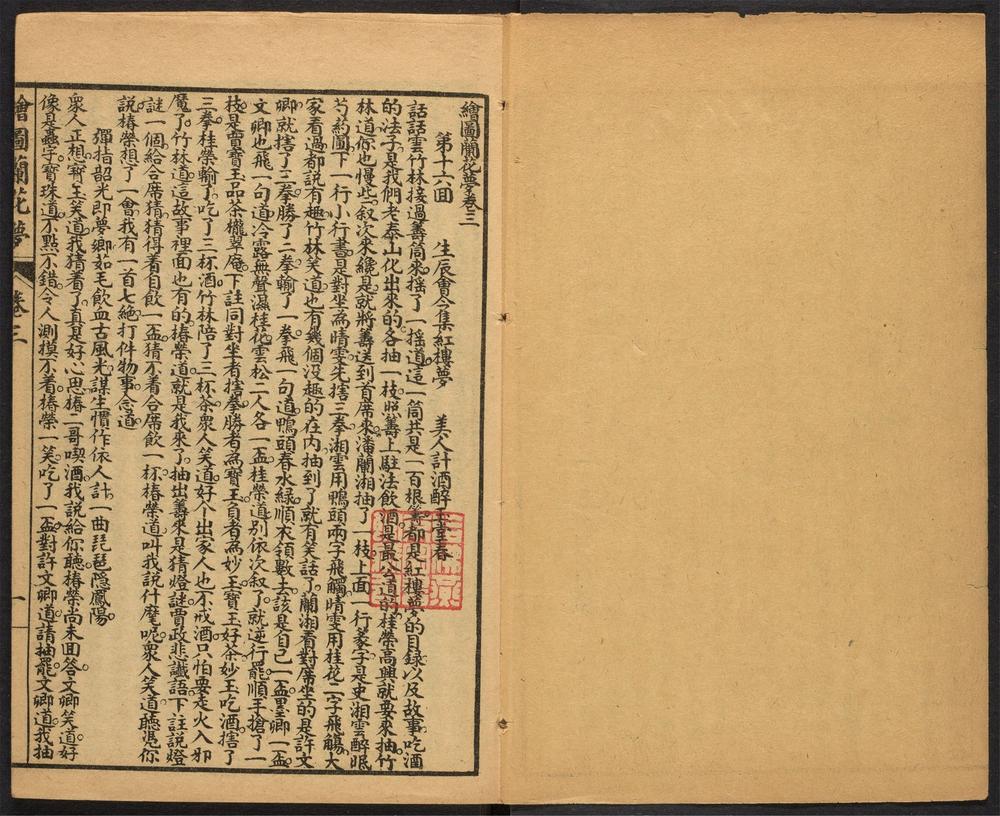 繪圖蘭花夢卷三
第十六回　生辰會令集紅樓夢　美人計酒醉玉堂春
話話雲竹林接過籌筒來揺了一揺道這一筒共是一百根籌都是紅樓夢的目録以及故事吃酒
的法子是我們老泰山化出來的各抽一枝照籌上駐法飲酒是最公道的桂榮高興就要來抽竹
林道你也慢些叙次來纔是就將籌送到首席來潘蘭湘抽了一枝上面一行篆字是史湘雲醉眠
芍葯圖下一行小行書是對坐為晴雯先搳三拳湘雲用鴨頭兩字飛觴晴雯用桂花二字飛觴大
家看過都說有趣竹林笑道也有幾個没趣的在内抽到了就有笑話了蘭湘看對席坐的是許文
卿就搳了三拳勝了二拳輸了一拳飛一句道鴨頭春水緑順衣領數去該是自己一盃墨卿一盃
文卿也飛一句道冷露無聲濕桂花雲松二人各一盃桂榮道别依次叙了就逆行罷順手搶了一
枝是賈寶玉品茶櫳翠庵下註同對坐者搳拳勝者為寶玉負者為妙玉寶玉好茶妙玉吃酒搳了
三拳桂榮輸了吃了三杯酒竹林陪了三杯茶衆人笑道好个出家人也不戒酒只怕要走火入邪
魔了竹林道這故事裡面也有的椿榮道就是我來了抽出籌來是猜燈謎賈政悲讖語下註説燈
謎一個給合席猜猜得着自飲一盃猜不着合席飲一杯椿榮道叫我説什麽呢衆人笑道聽凭你
説椿榮想了一會我有一首七絶打件物事念道
彈指韶光即夢卿茹毛飲血古風光謀生慣作依人計一曲琵琶隠鳳陽
衆人正想寳玉笑道我猜着了真是好心思椿二哥喫酒我説給你聽椿榮尚未回答文卿笑道好
像是蟲字寳珠道不點不錯令人測摸不着椿榮一笑吃了一盃對許文卿道請抽罷文卿道我抽
繪圖蘭花夢　卷三　一